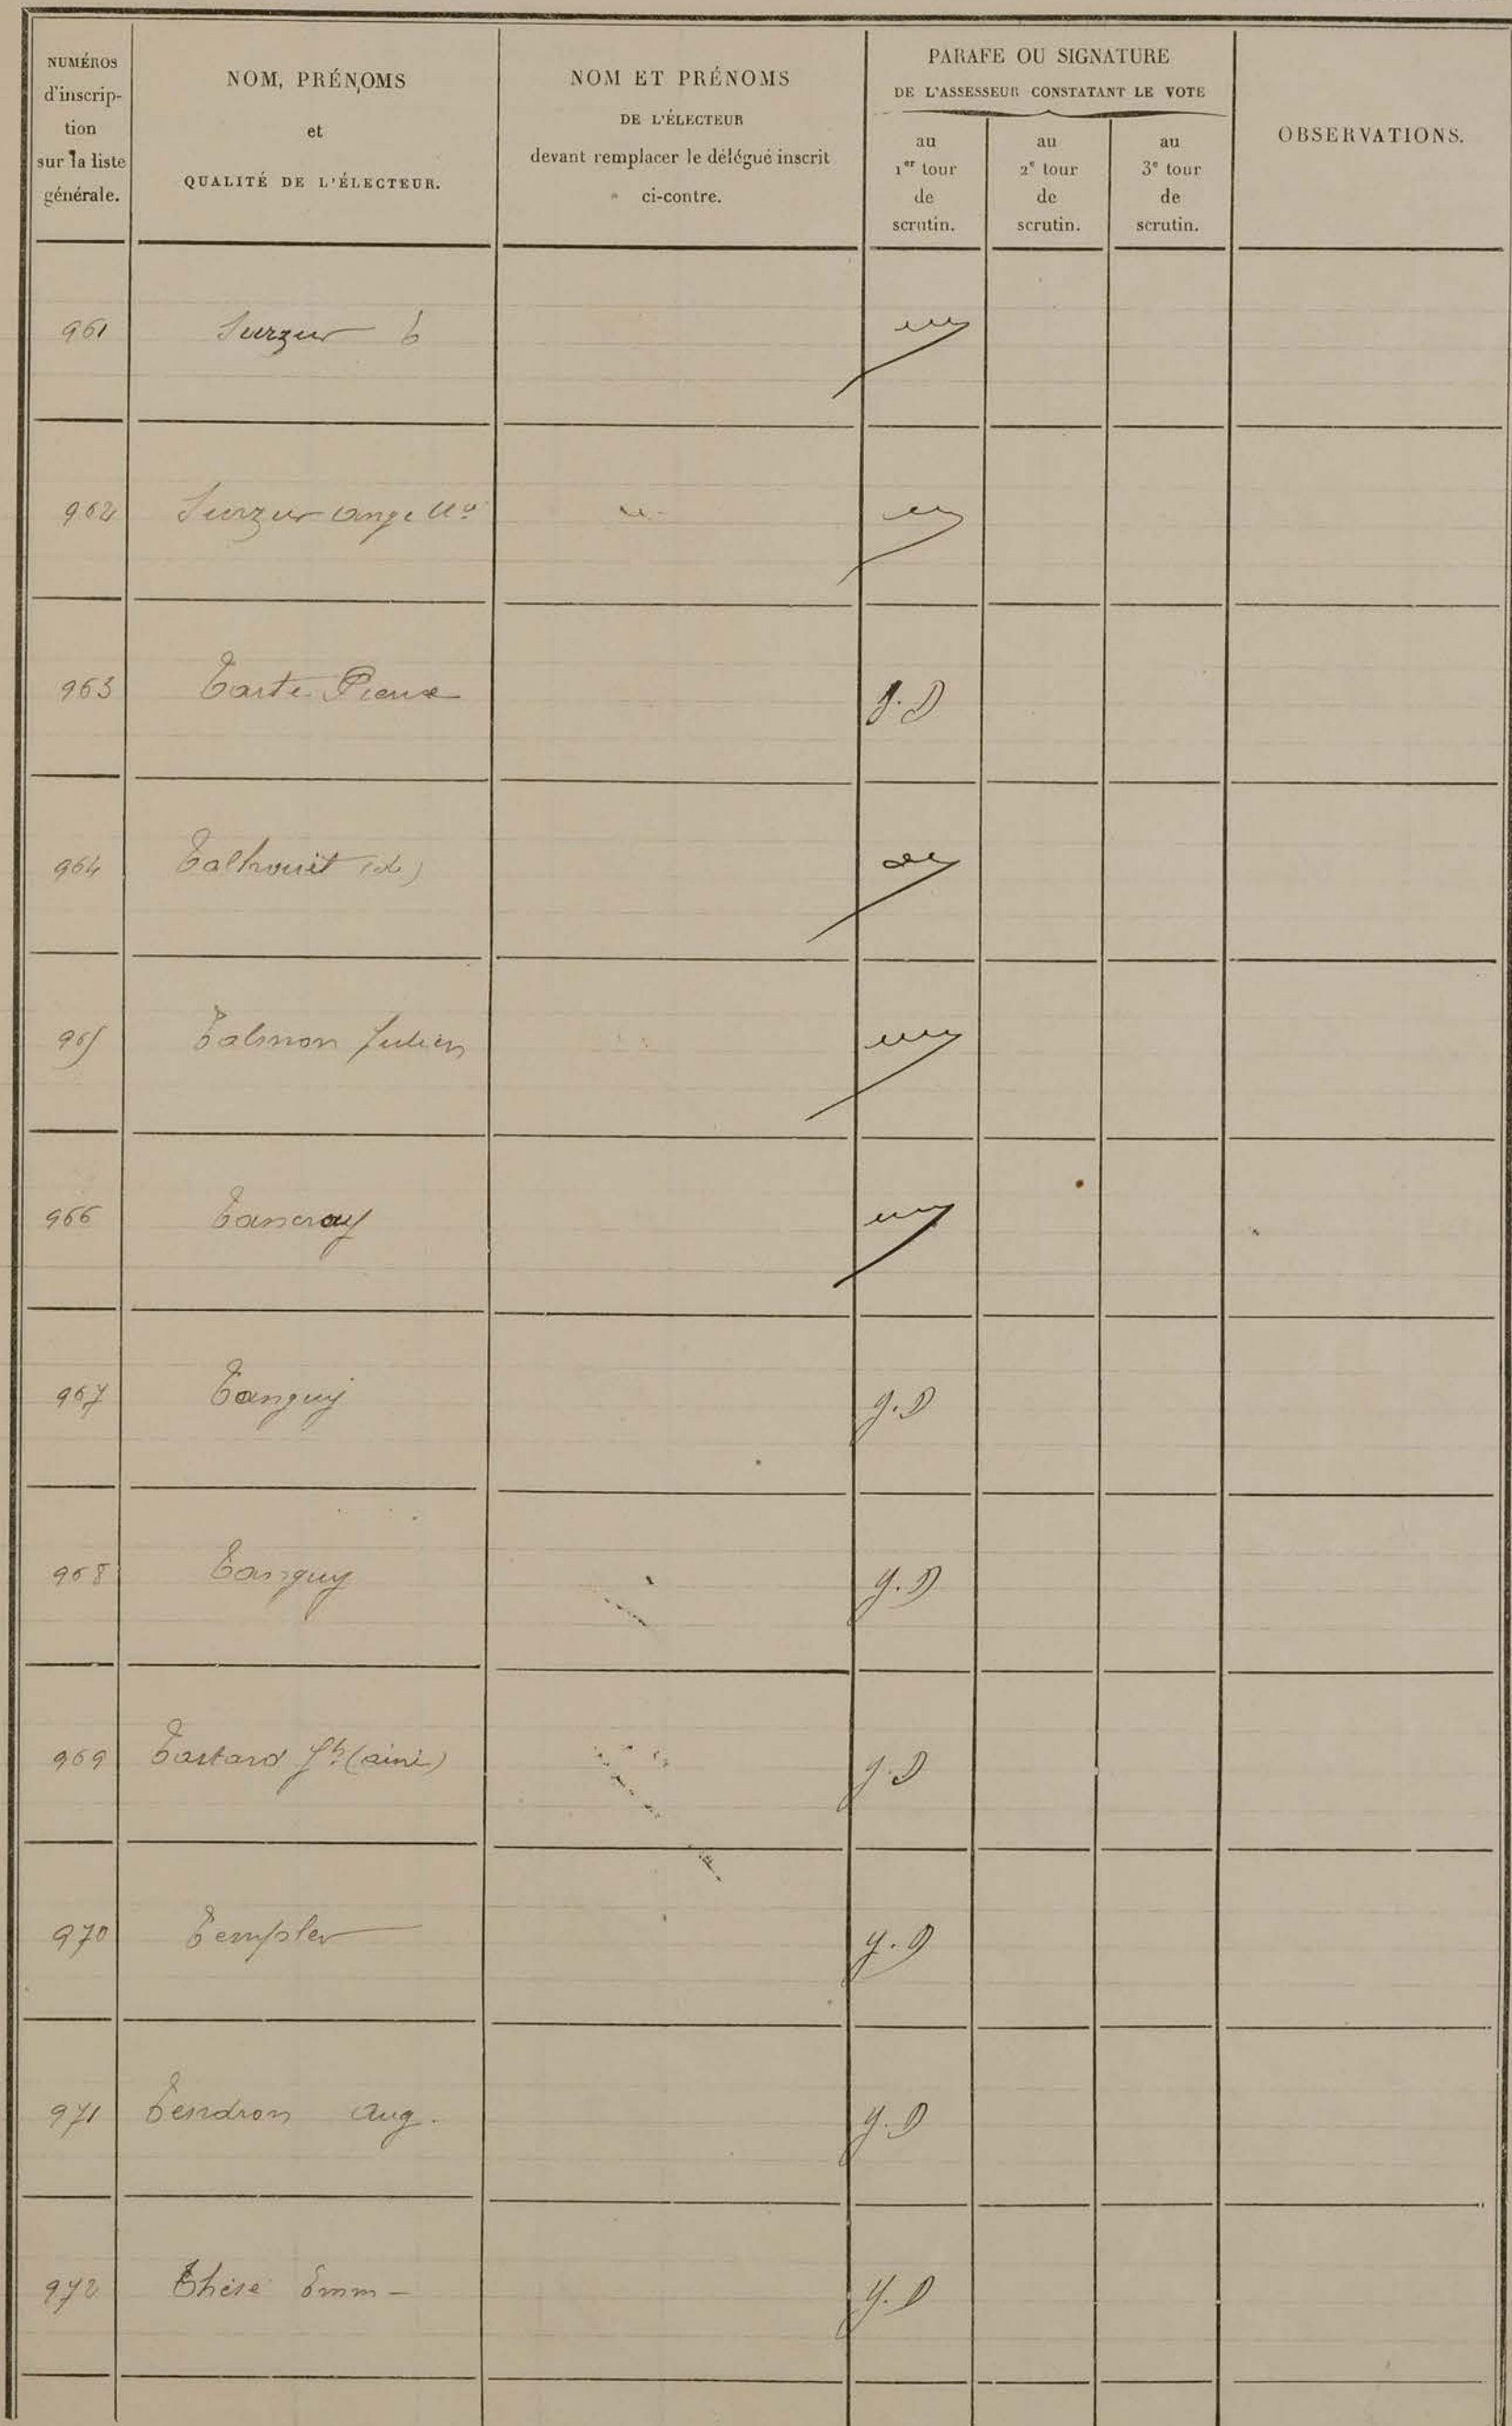 NUMÉROS
d'inscrip-
tion
sur la liste
générale.
NOM, PRÉNOMS
et
QUALITÉ DE L'ÉLECTEUR.
NOM ET PRÉNOMS
DE L'ÉLECTEUR
devant remplacer le délégué inscrit
ci-contre.
PARAFE OU SIGNATURE
DE L'ASSESSEUR CONSTATANT LE VOTE
au
1er tour
de
scrutin.
au
2e tour
de
scrutin.
au
3e tour
de
scrutin.
OBSERVATIONS.
961 Surzur
962 Surzur Ange
963 Tarte Pierre J.D
964 Talhouit (de)
965 Talmon Julien
966 Tancray
967 Tanguy J.D
968 Tanguy J.D
969 Tastard Jh (ainé) J.D
970 Templer J.D
971 Tendron Aug. J.D
972 Thésé Emm - J.D